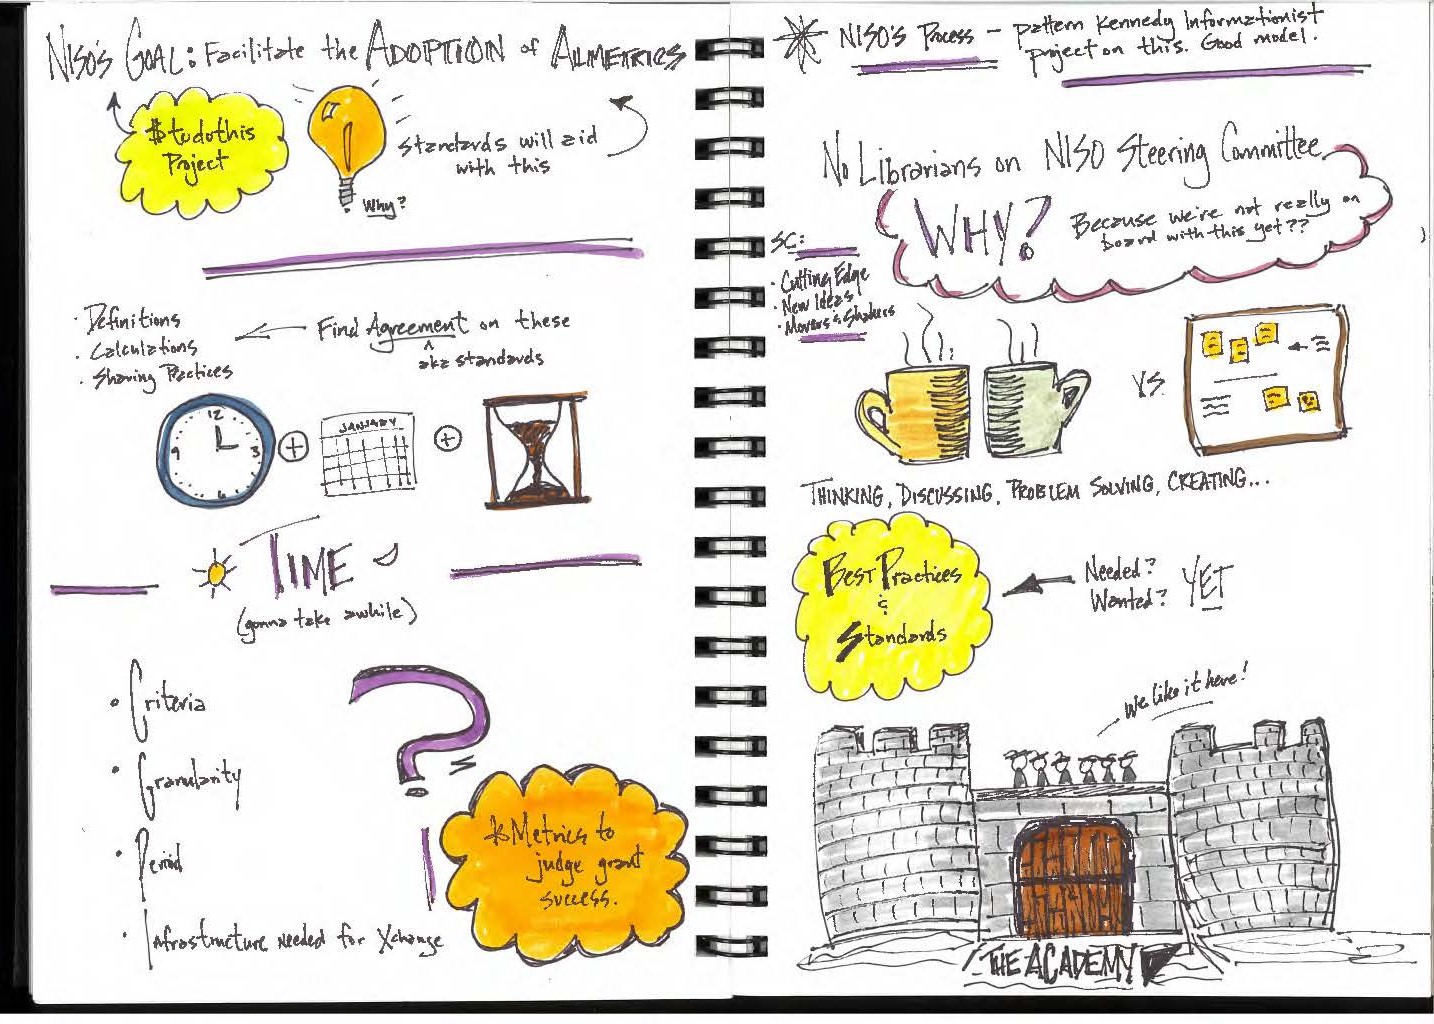 NISO'S GOAL: Facilitate the ADOPTION of ALTMETRICS
$ to do this
Project
Standards will aid
with this
Why?
· Definitions
· Calculations
· Sharing Practices
Find Agreement on these
^
aka standards
12
3
6
9
+
JANUARY
+
TIME
(gonna take awhile)
· Criteria
· Granularity
· Period
· Infrastructure Needed for Xchange
?
* Metrics to
judge grant
success.
NISO'S Process – pattern Kennedy Informationist
project on this. Good model.
No Librarians on NISO Steering Committee
WHY? Because we're not really on
board with this yet??
SC:
· Cutting Edge
· New Ideas
· Movers & Shakers
VS.
THINKING, DISCUSSING, PROBLEM SOLVING, CREATING...
Best Practices
&
Standards
Needed?
Wanted? YET
We like it here!
THE ACADEMY